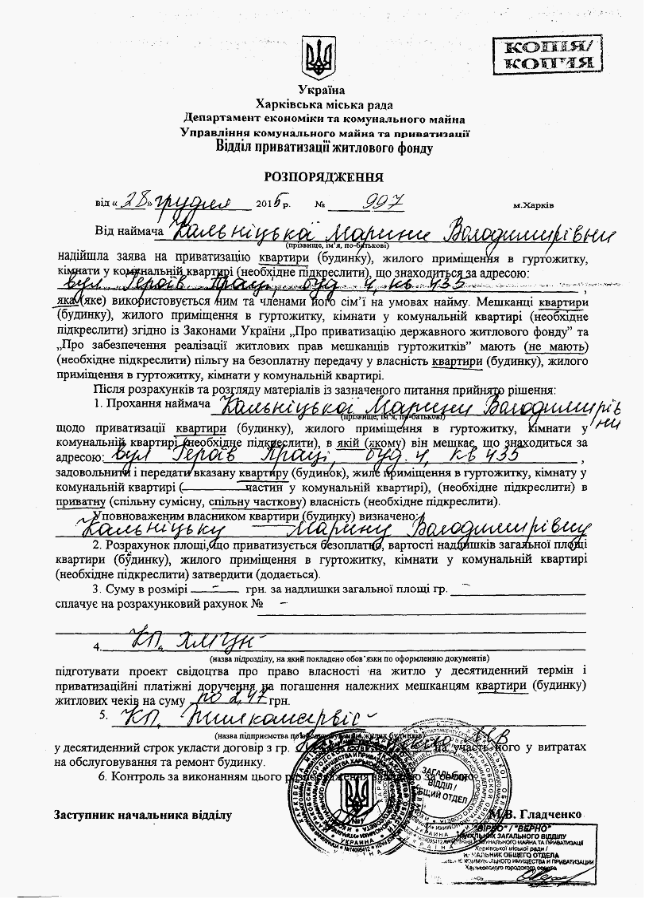 КОПІЯ/
КОП'ІЯ
Україна
Харківська міська рада
Департамент економіки та комунального майна
Управління комунального майна та приватизації
Відділ приватизації житлового фонду
РОЗПОРЯДЖЕННЯ
від « 28 » грудня 2015 р. № 997 м.Харків
Від наймача Кальніцької Марини Володимирівни
(прізвище, ім'я, по-батькові)
надійшла заява на приватизацію квартири (будинку), жилого приміщення в гуртожитку,
кімнати у комунальній квартирі (необхідне підкреслити), що знаходиться за адресою:
вул Героїв Праці буд 4, кв 435 ,
яка (яке) використовується ним та членами його сім'ї на умовах найму. Мешканці квартири
(будинку), жилого приміщення в гуртожитку, кімнати у комунальній квартирі (необхідне
підкреслити) згідно із Законами України „Про приватизацію державного житлового фонду" та
„Про забезпечення реалізації житлових прав мешканців гуртожитків" мають (не мають)
(необхідне підкреслити) пільгу на безоплатну передачу у власність квартири (будинку), жилого
приміщення в гуртожитку, кімнати у комунальній квартирі.
Після розрахунків та розгляду матеріалів із зазначеного питання прийнято рішення:
1. Прохання наймача Кальніцької Марини Володимирівни
(прізвище, ім'я, по-батькові)
щодо приватизації квартири (будинку), жилого приміщення в гуртожитку, кімнати у
комунальній квартирі (необхідне підкреслити), в якій (якому) він мешкає, що знаходиться за
адресою: вул Героїв Праці буд. 4, кв 435 ,
задовольнити і передати вказану квартиру (будинок), жиле приміщення в гуртожитку, кімнату у
комунальній квартирі ( — частин у комунальній квартирі), (необхідне підкреслити) в
приватну (спільну сумісну, спільну часткову) власність (необхідне підкреслити).
Уповноваженим власником квартири (будинку) визначено:
Кальніцьку Марину Володимирівну
2. Розрахунок площі, що приватизується безоплатно, вартості надлишків загальної площі
квартири (будинку), жилого приміщення в гуртожитку, кімнати у комунальній квартирі
(необхідне підкреслити) затвердити (додається).
3. Суму в розмірі — грн. за надлишки загальної площі гр. –
сплачує на розрахунковий рахунок № –
4. КП
(назва підрозділу, на який покладено обов'язки по оформленню документів)
підготувати проект свідоцтва про право власності на житло у десятиденний термін і
приватизаційні платіжні доручення на погашення належних мешканцям квартири (будинку)
житлових чеків на суму по 2,47 грн.
5. КП „Жилкомсервіс"
(назва підприємства по
у десятиденний строк укласти договір з гр. на участь його у витратах
на обслуговування та ремонт будинку.
6. Контроль за виконанням цього
Заступник начальника відділу М.В. Гладченко
ЗАГАЛЬНИЙ
ВІДДІЛ /
ОБЩИЙ ОТДЕЛ
УКРАИНА
"ВІРНО" / "ВЕРНО"
НАЧАЛЬНИК ЗАГАЛЬНОГО ВІДДІЛУ
Харківської міської ради /
НАЧАЛЬНИК ОБЩЕГО ОТДЕЛА
Харьковского городского совета